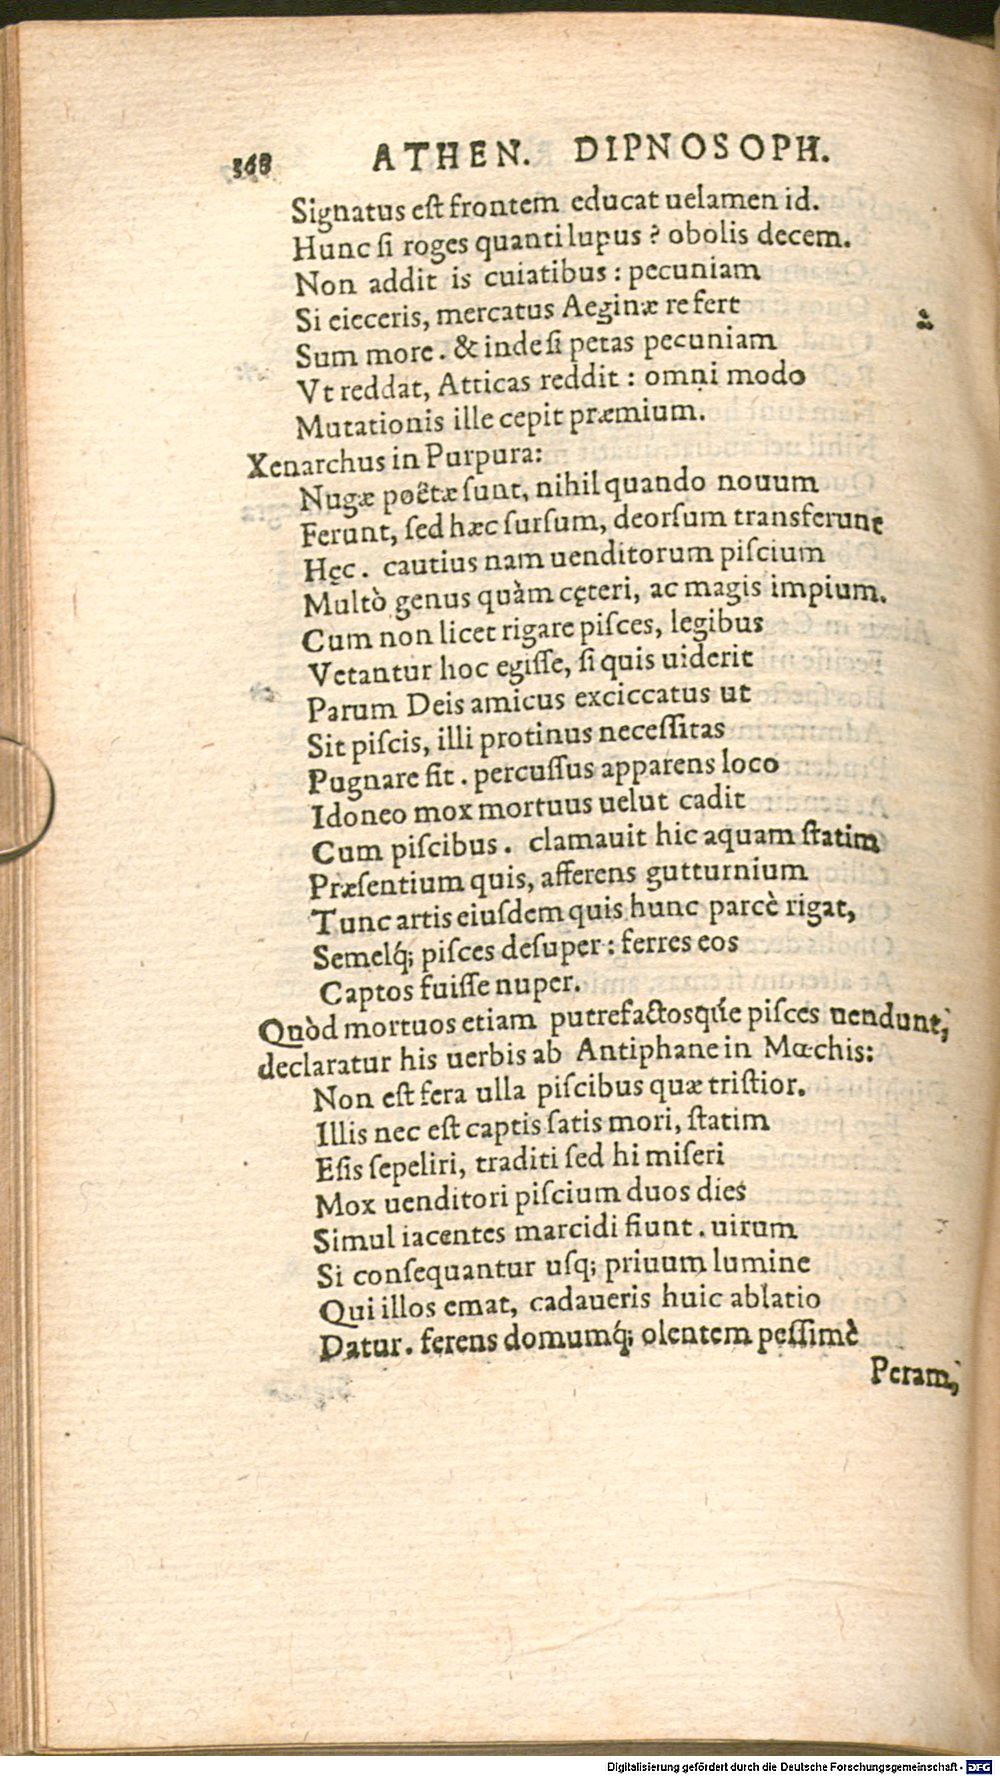 368 ATHEN. DIPNOSOPH.
Signatus est frontem educat uelamen id.
Hunc si roges quanti lupus? obolis decem.
Non addit is cuiatibus: pecuniam
Si eieceris, mercatus Aeginæ refert
Sum more. & inde si petas pecuniam
Vt reddat, Atticas reddit: omni modo
Mutationis ille cepit præmium.
Xenarchus in Purpura:
Nugæ poëtæ sunt, nihil quando nouum
Ferunt, sed hæc sursum, deorsum transferunt
Hęc. cautius nam uenditorum piscium
Multò genus quàm cęteri, ac magis impium.
Cum non licet rigare pisces, legibus
Vetantur hoc egisse, si quis uiderit
Parum Deis amicus exciccatus ut
Sit piscis, illi protinus necessitas
Pugnare fit. percussus apparens loco
Idoneo mox mortuus uelut cadit
Cum piscibus. clamauit hic aquam statim
Præsentium quis, afferens gutturnium
Tunc artis eiusdem quis hunc parcè rigat,
Semelq́; pisces desuper: ferres eos
Captos fuisse nuper.
Quòd mortuos etiam putrefactosq́ue pisces uendunt,
declaratur his uerbis ab Antiphane in Mœchis:
Non est fera ulla piscibus quæ tristior.
Illis nec est captis satis mori, statim
Esis sepeliri, traditi sed hi miseri
Mox uenditori piscium duos dies
Simul iacentes marcidi fiunt. uirum
Si consequantur usq; priuum lumine
Qui illos emat, cadaueris huic ablatio
Datur. ferens domumq́; olentem pessimè
Peram,
Digitalisierung gefördert durch die Deutsche Forschungsgemeinschaft - DFG